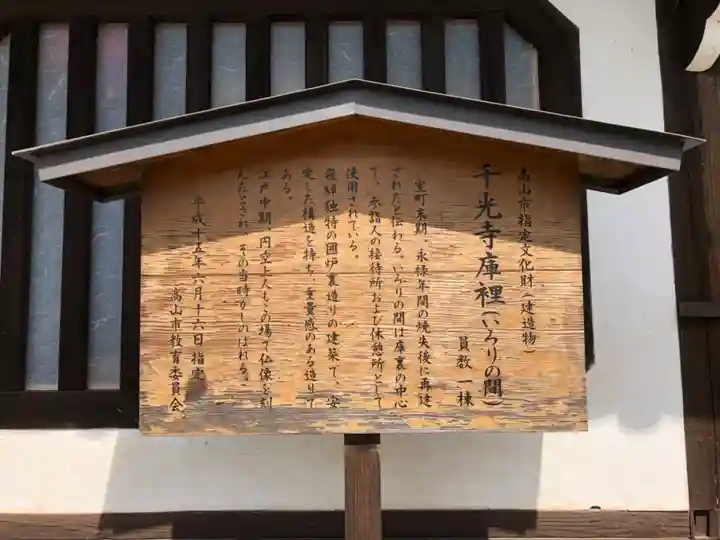 高山市指定文化財(建造物)
千光寺庫裡(いろりの間)
員数 一棟
室町末期、永禄年間の焼失後に再建
されたと伝わる。いろりの間は庫裏の中心
で、参詣人の接待所および休憩所として
使用されている。
飛騨独特の囲炉裏造りの建築で、安
定した構造を持ち、重量感のある造りで
ある。
江戸中期、円空上人もこの場で仏像を刻
んだとされ、その当時がしのばれる。
平成十五年六月十六日指定
高山市教育委員会